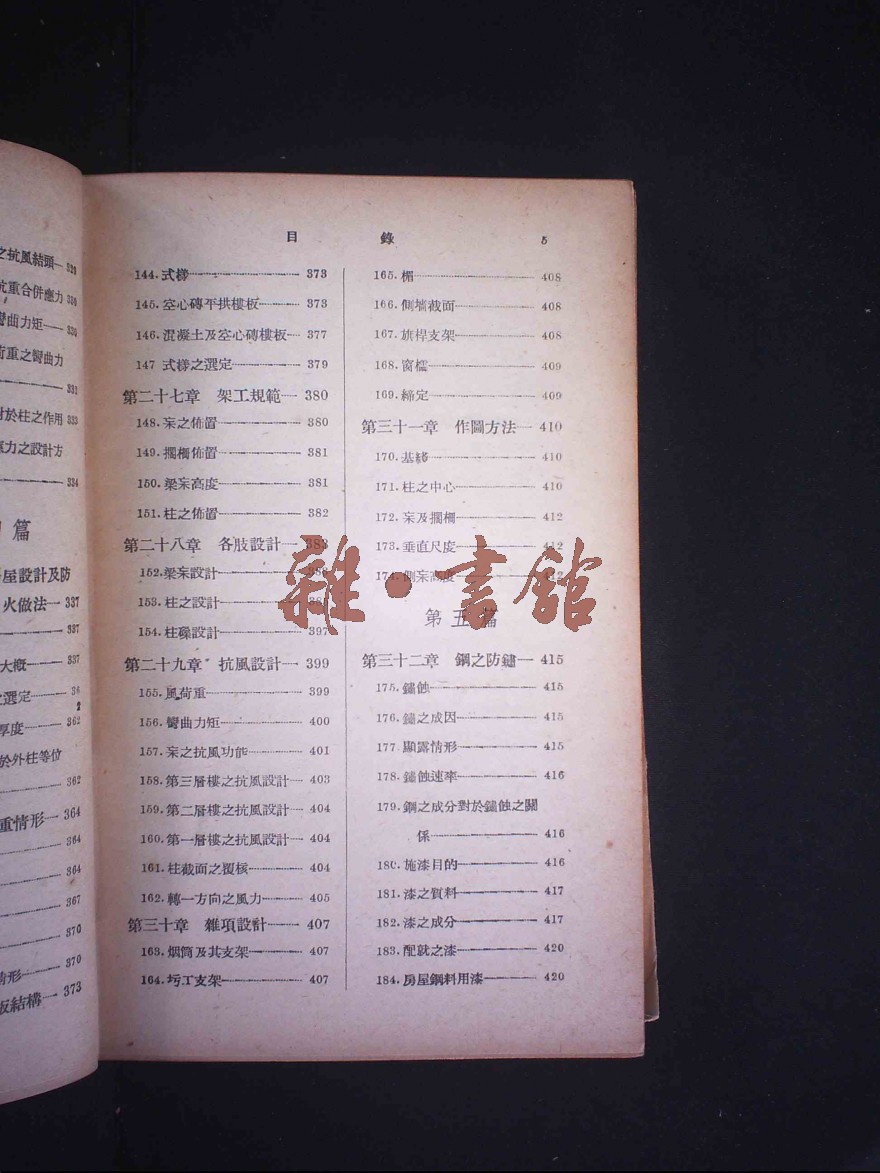 之抗風結頭 329
抗重合併應力 330
彎曲力矩 330
荷重之彎曲力
331
對於柱之作用 333
應力之設計方
334
篇
屋設計及防
火做法 337
337
大概 337
選定 36
2
厚度 362
於外柱等位
362
重情形 364
364
364
367
370
情形 370
板結構 373
目 錄 5
144. 式樣 373
145. 空心磚平拱樓板 373
146. 混凝土及空心磚樓板 377
147 式樣之選定 379
第二十七章 架工規範 380
148. 杗之佈置 380
149. 擱柵佈置 381
150. 梁杗高度 381
151. 柱之佈置 382
第二十八章 各肢設計 383
152. 梁杗設計
153. 柱之設計
154. 柱磉設計 397
第二十九章 抗風設計 399
155. 風荷重 399
156. 彎曲力矩 400
157. 杗之抗風功能 401
158. 第三層樓之抗風設計 403
159. 第二層樓之抗風設計 404
160. 第一層樓之抗風設計 404
161. 柱截面之覆核 404
162. 轉一方向之風力 405
第三十章 雜項設計 407
163. 烟筒及其支架 407
164. 圬工支架 407
165. 楣 408
166. 側墻截面 408
167. 旗桿支架 408
168. 窗檻 409
169. 締定 409
第三十一章 作圖方法 410
170. 基綫 410
171. 柱之中心 410
172. 杗及擱柵 412
173. 垂直尺度 412
174. 側杗高度 412
雜·書館
第五篇
第三十二章 鋼之防鏽 415
175. 鏽蝕 415
176. 鏽之成因 415
177. 顯露情形 415
178. 鏽蝕速率 416
179. 鋼之成分對於鏽蝕之關
係 416
180. 施漆目的 416
181. 漆之質料 417
182. 漆之成分 417
183. 配就之漆 420
184. 房屋鋼料用漆 420